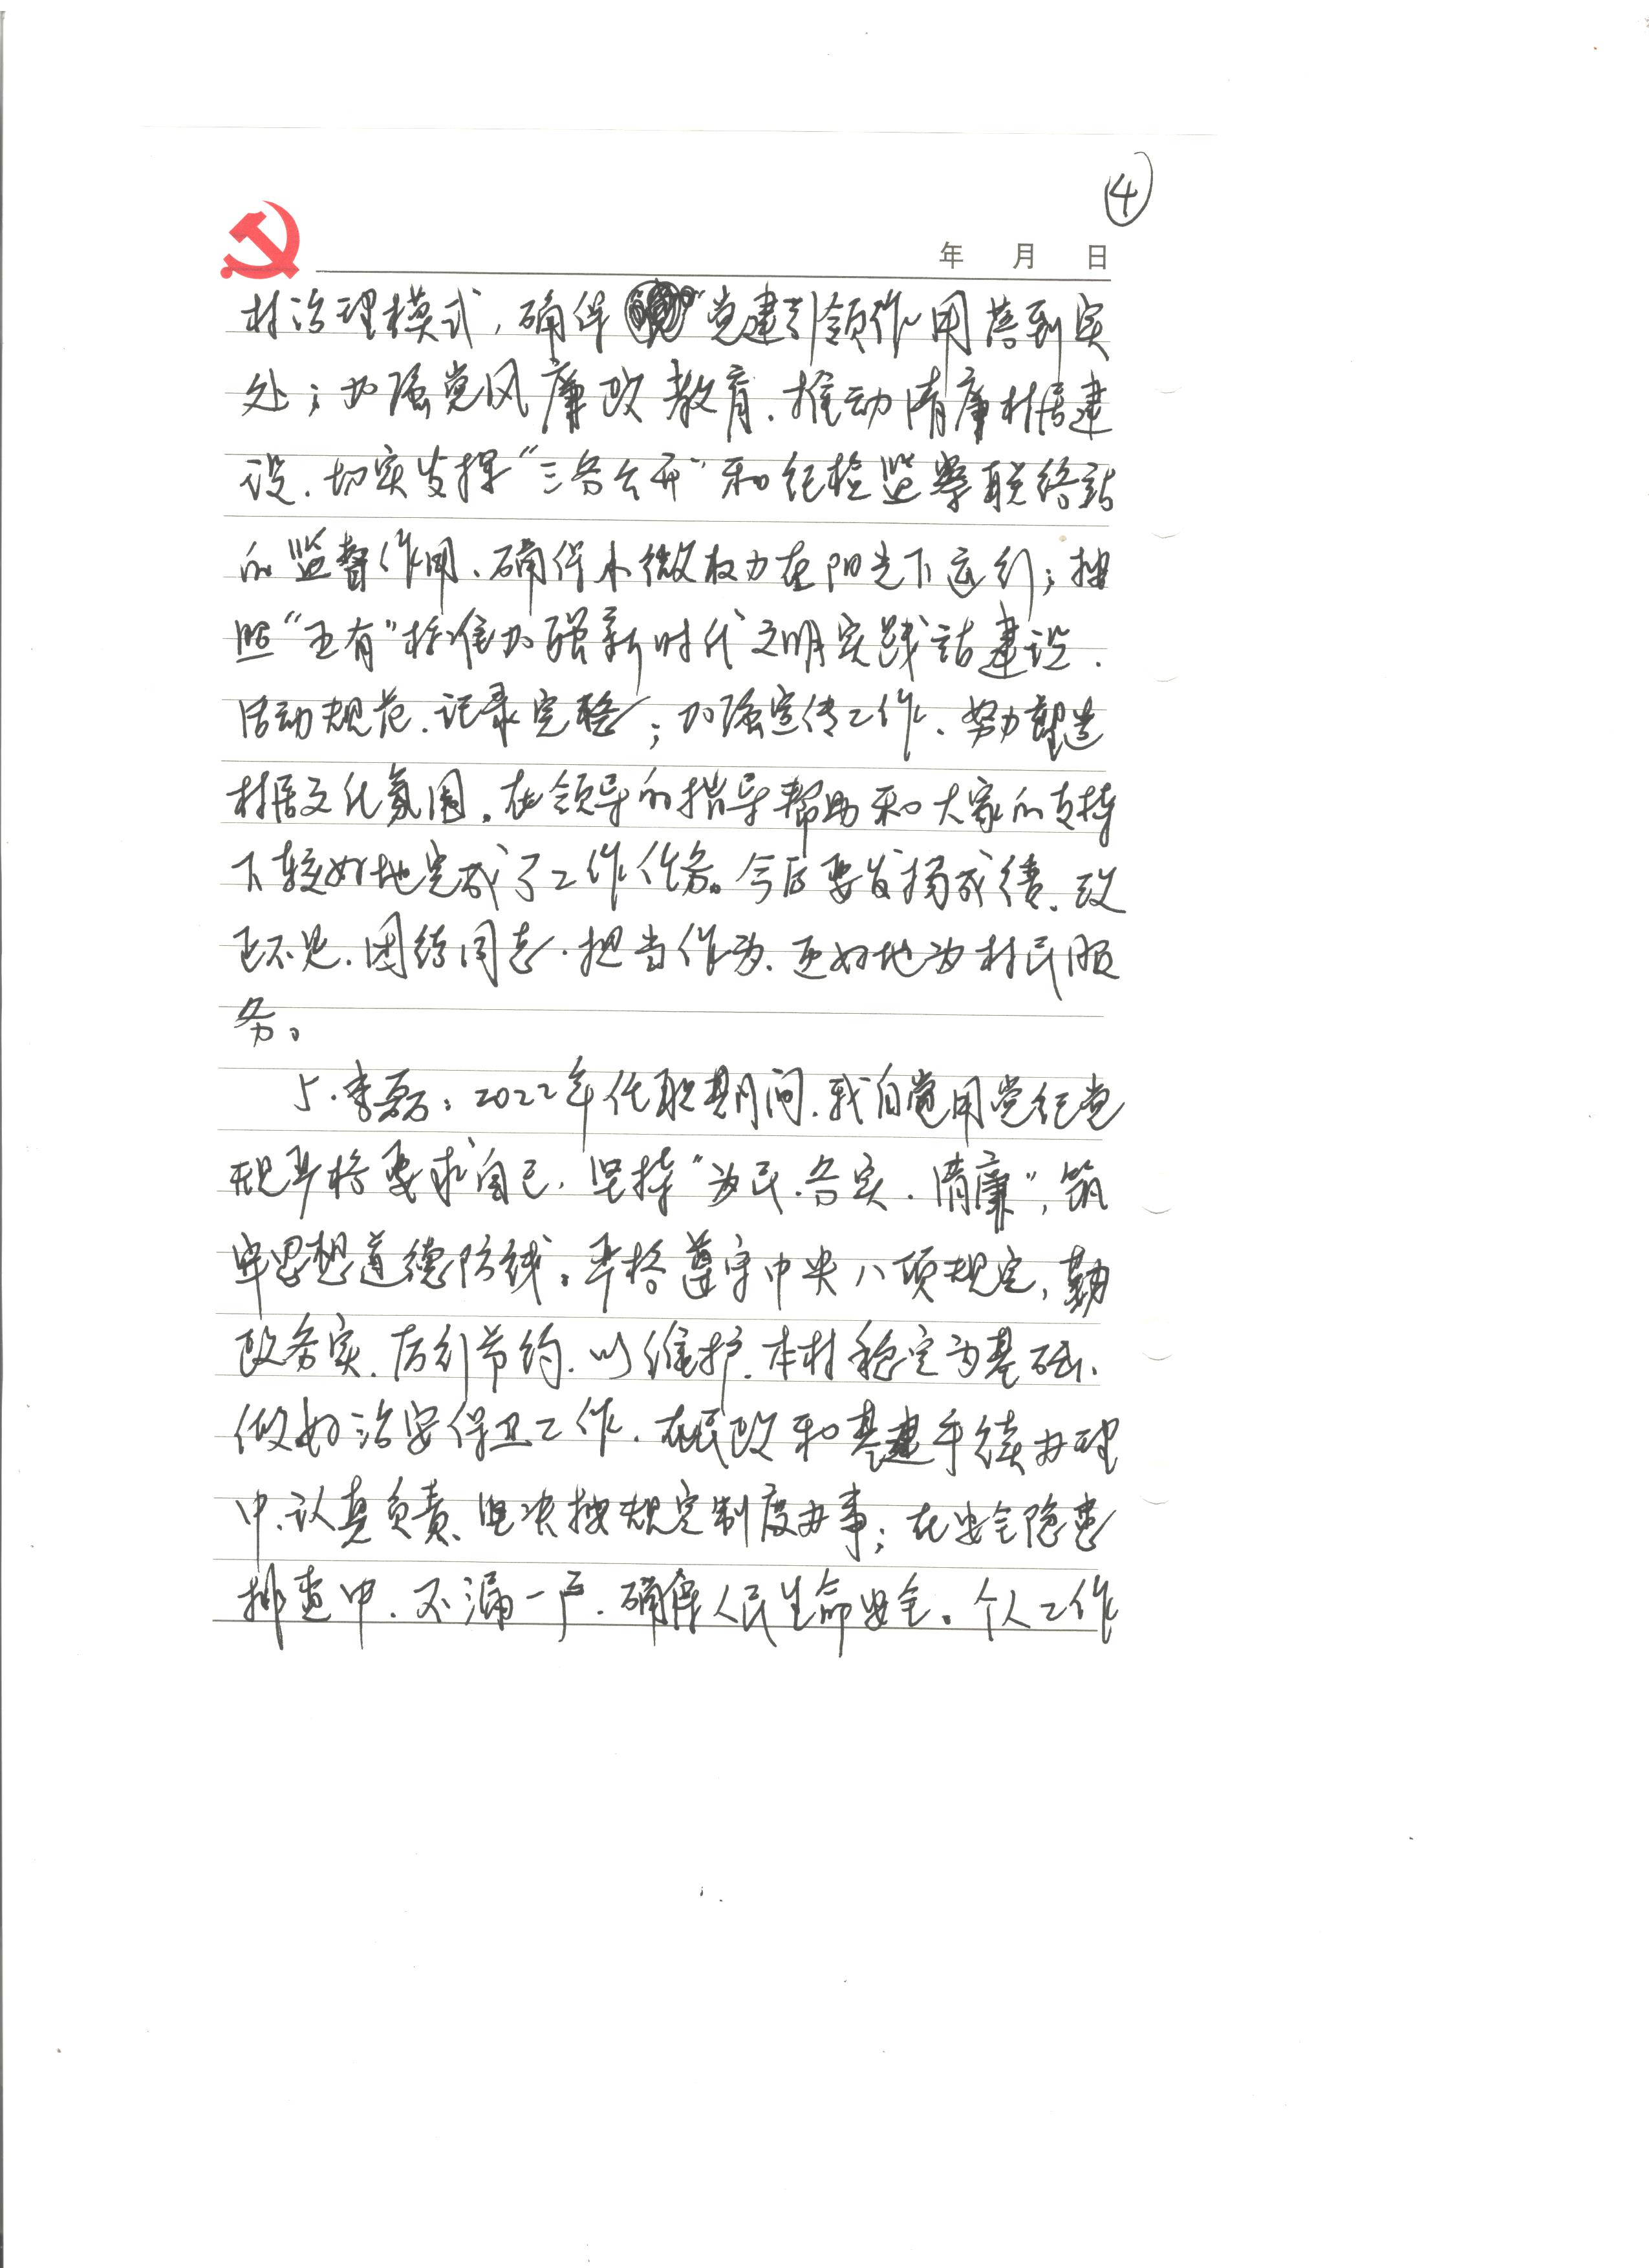 ④
年 月 日
村治理模式,确保"党建引领作用落到实
处;加强党风廉政教育、推动清廉村居建
设、切实发挥"三务公开"和纪检监察联络站
的监督作用、确保小微权力在阳光下运行;按
照"五有"标准加强新时代文明实践站建设、
活动规范、记录完整;加强宣传工作、努力塑造
村居文化氛围。在领导的指导帮助和大家的支持
下较好地完成了工作任务。今后要发扬成绩、改
正不足、团结同志、担当作为、更好地为村民服
务。
5.李磊:2022年任职期间、我自觉用党纪党
规严格要求自己,坚持"为民、务实、清廉",筑
牢思想道德防线。严格遵守中央八项规定,勤
政务实、厉行节约、以维护本村稳定为基础、
做好治安保卫工作、在民政和基建手续办理
中、认真负责、坚决按规定制度办事;在安全隐患
排查中、不漏一户、确保人民生命安全。个人工作